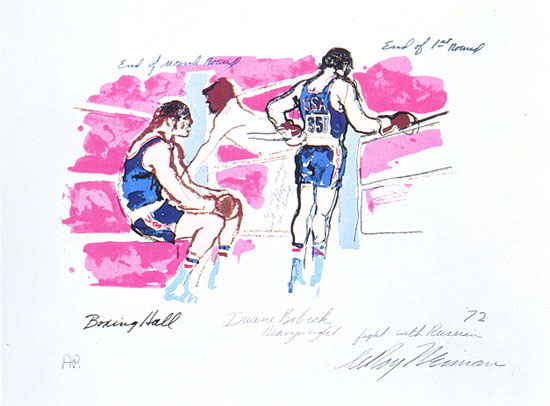 End of 1st Round
End of second Round
USA
351
Boxing Hall
Duane Bobick
Heavyweight
'72
fight with Russian
LeRoy Neiman
AP.